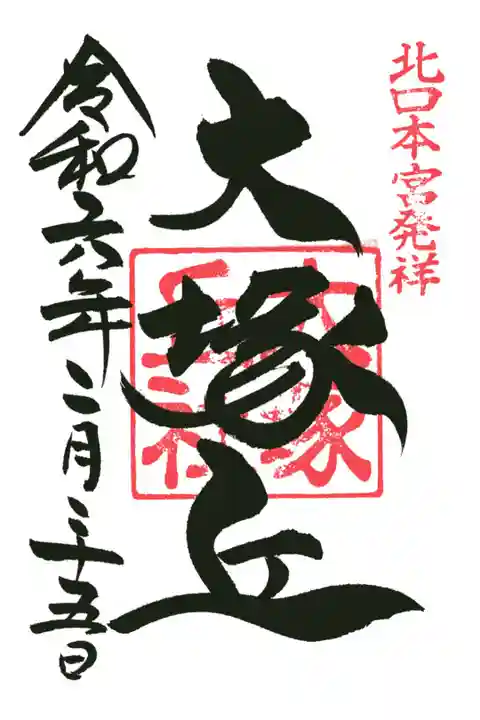 北口本宮発祥
大塚丘
大塚
丘社
令和六年二月二十五日